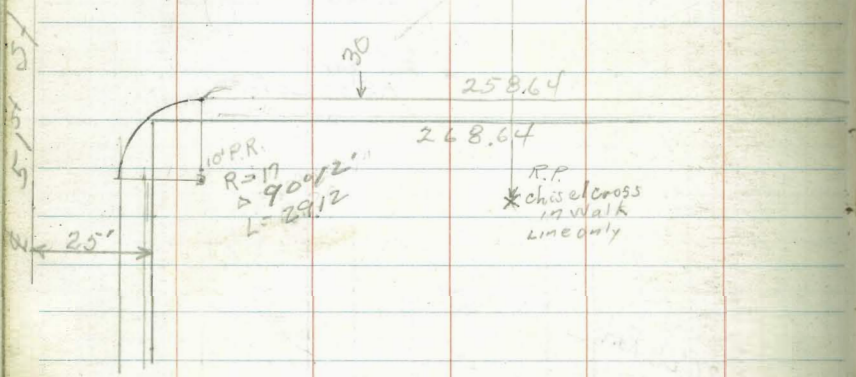 30
258.64
268.64
10' P.R.
R=17
Δ 90°12'
L=29.12
R.P.
chisel cross
in walk
Line only
25'